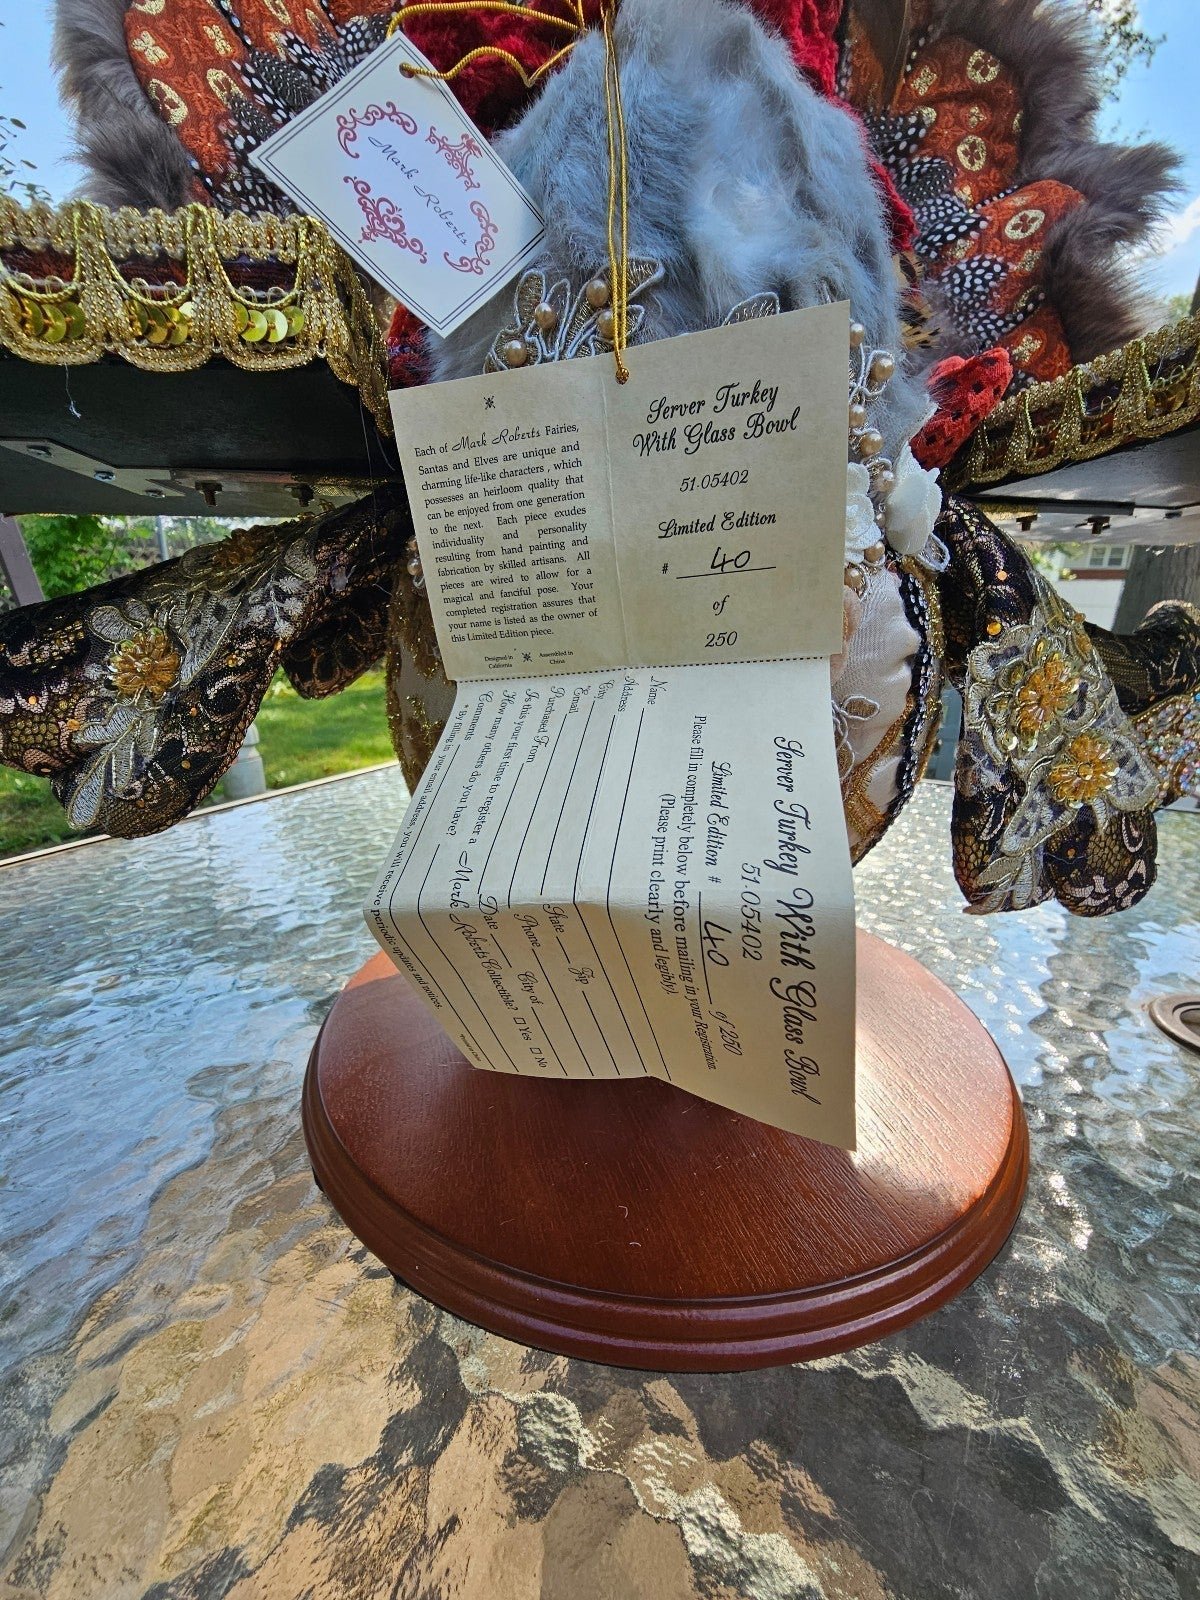 Mark Roberts
Each of Mark Roberts Fairies,
Santas and Elves are unique and
charming life-like characters , which
possesses an heirloom quality that
can be enjoyed from one generation
to the next. Each piece exudes
individuality and personality
resulting from hand painting and
fabrication by skilled artisans. All
pieces are wired to allow for a
magical and fanciful pose. Your
completed registration assures that
your name is listed as the owner of
this Limited Edition piece.
Designed in California
Assembled in China
Server Turkey
With Glass Bowl
51-05402
Limited Edition
# 40
of
250
Server Turkey With Glass Bowl
51-05402
Limited Edition # 40 of 250
Please fill in completely below before mailing in your Registration
(Please print clearly and legibly).
Name
Address
City State Zip
*Email Phone
Purchased From City of
Is this your first time to register a Mark Roberts Collectible? Yes No
How many others do you have? Date
Comments
* By filling in your email address, you will receive periodic updates and notices.